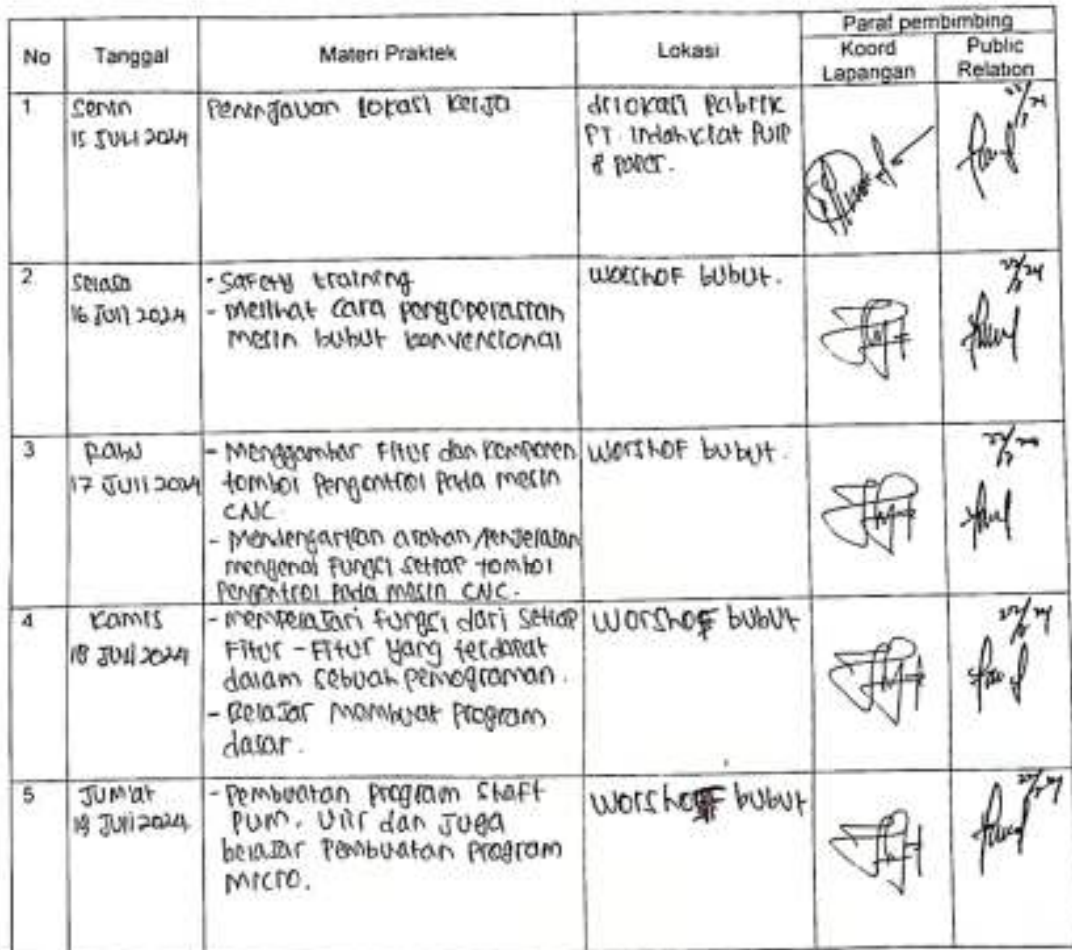 No Tanggal Materi Praktek Lokasi Paraf pembimbing
Koord Lapangan Public Relation
1 Senin
15 JULI 2024
Peninjauan lokasi kerja
dilokasi Pabrik
PT. Indah kiat Pulp
& paper.
2 Selasa
16 Juli 2024
- Safety training
- Melihat cara pengoperasian
mesin bubut konvensional
worshof bubut.
3 Rabu
17 Juli 2024
- Menggambar Fitur dan Komponen
tombol Pengontrol Pada mesin
CNC.
- Mendengarkan arahan/penjelasan
mengenai Fungsi Setiap tombol
Pengontrol Pada mesin CNC.
worshof bubut.
4 Kamis
18 Juli 2024
- mempelajari fungsi dari Setiap
Fitur - Fitur yang terdapat
dalam sebuah pemograman.
- Belajar membuat Program
dasar.
worshof bubut
5 Jum'at
19 Juli 2024
- Pembuatan program Shaft
Pum. Ulir dan Juga
belajar Pembuatan program
micro.
worshof bubut